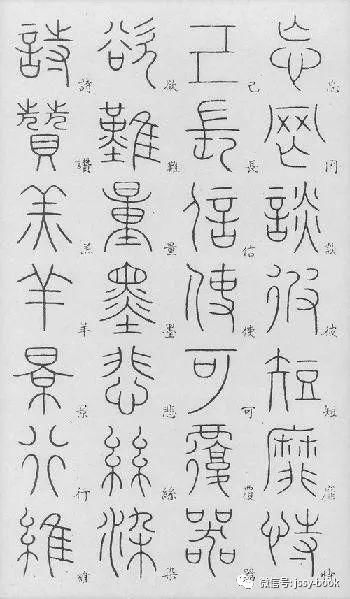 忘罔談彼短靡恃
忘罔談彼短靡恃
己長信使可覆器
己長信使可覆器
欲難量墨悲絲染
欲難量墨悲絲染
詩贊羔羊景行維
詩讚羔羊景行維
微信号: jssy-book